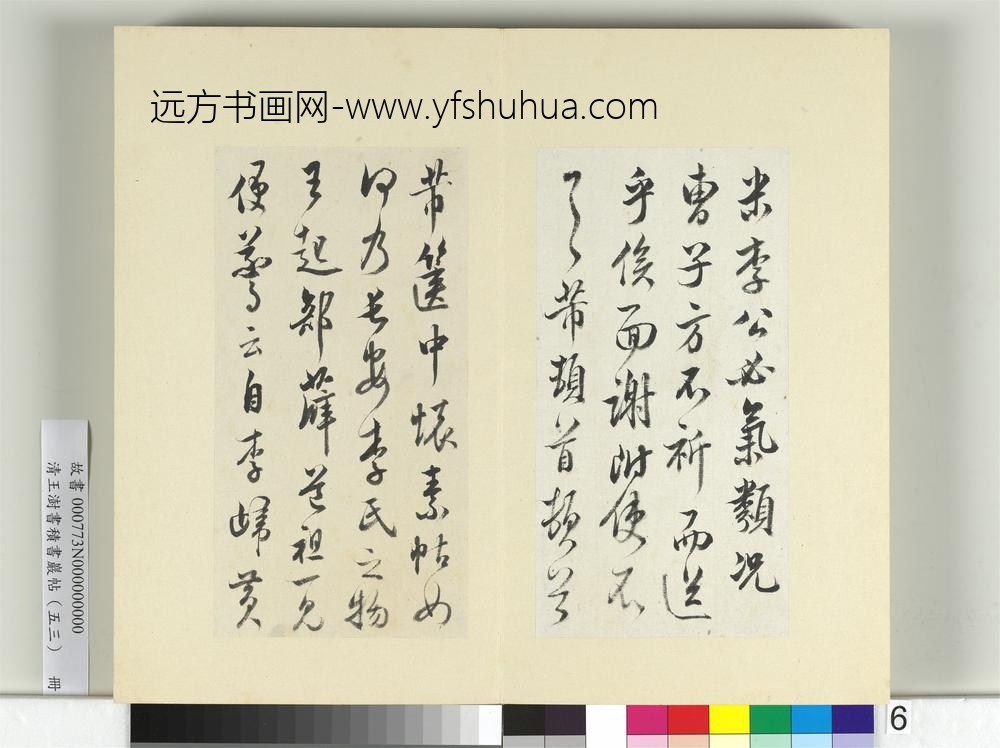 远方书画网-www.yfshuhua.com
米李公必氣類況
曹子方不祈而送
乎俟面謝附使不
了了芾頓首頓首
芾篋中懷素帖如
何乃長安李氏之物
王起郤薛道祖一見
便驚云自李歸黃
故書000773N000000000
清王澍書積書巖帖(五三) 冊
6